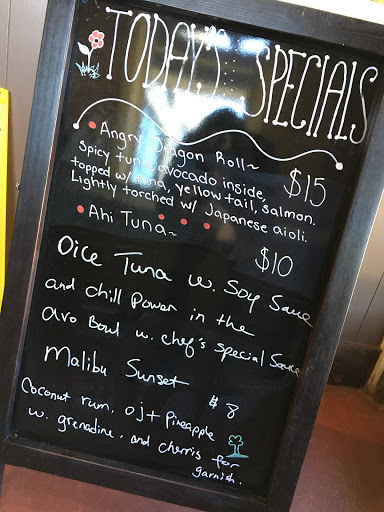 TODAY'S SPECIALS
Angry Dragon Roll~
Spicy tuna, avocado inside,
topped w/ tuna, yellow tail, salmon.
Lightly torched w/ Japanese aioli.
$15
Ahi Tuna~
$10
Dice Tuna w. Soy Sauce
and chill Power in the
avo Bowl w. chef's special Sauce
Malibu Sunset
$8
Coconut rum, oj + Pineapple
w. grenadine, and cherris for
garnish.